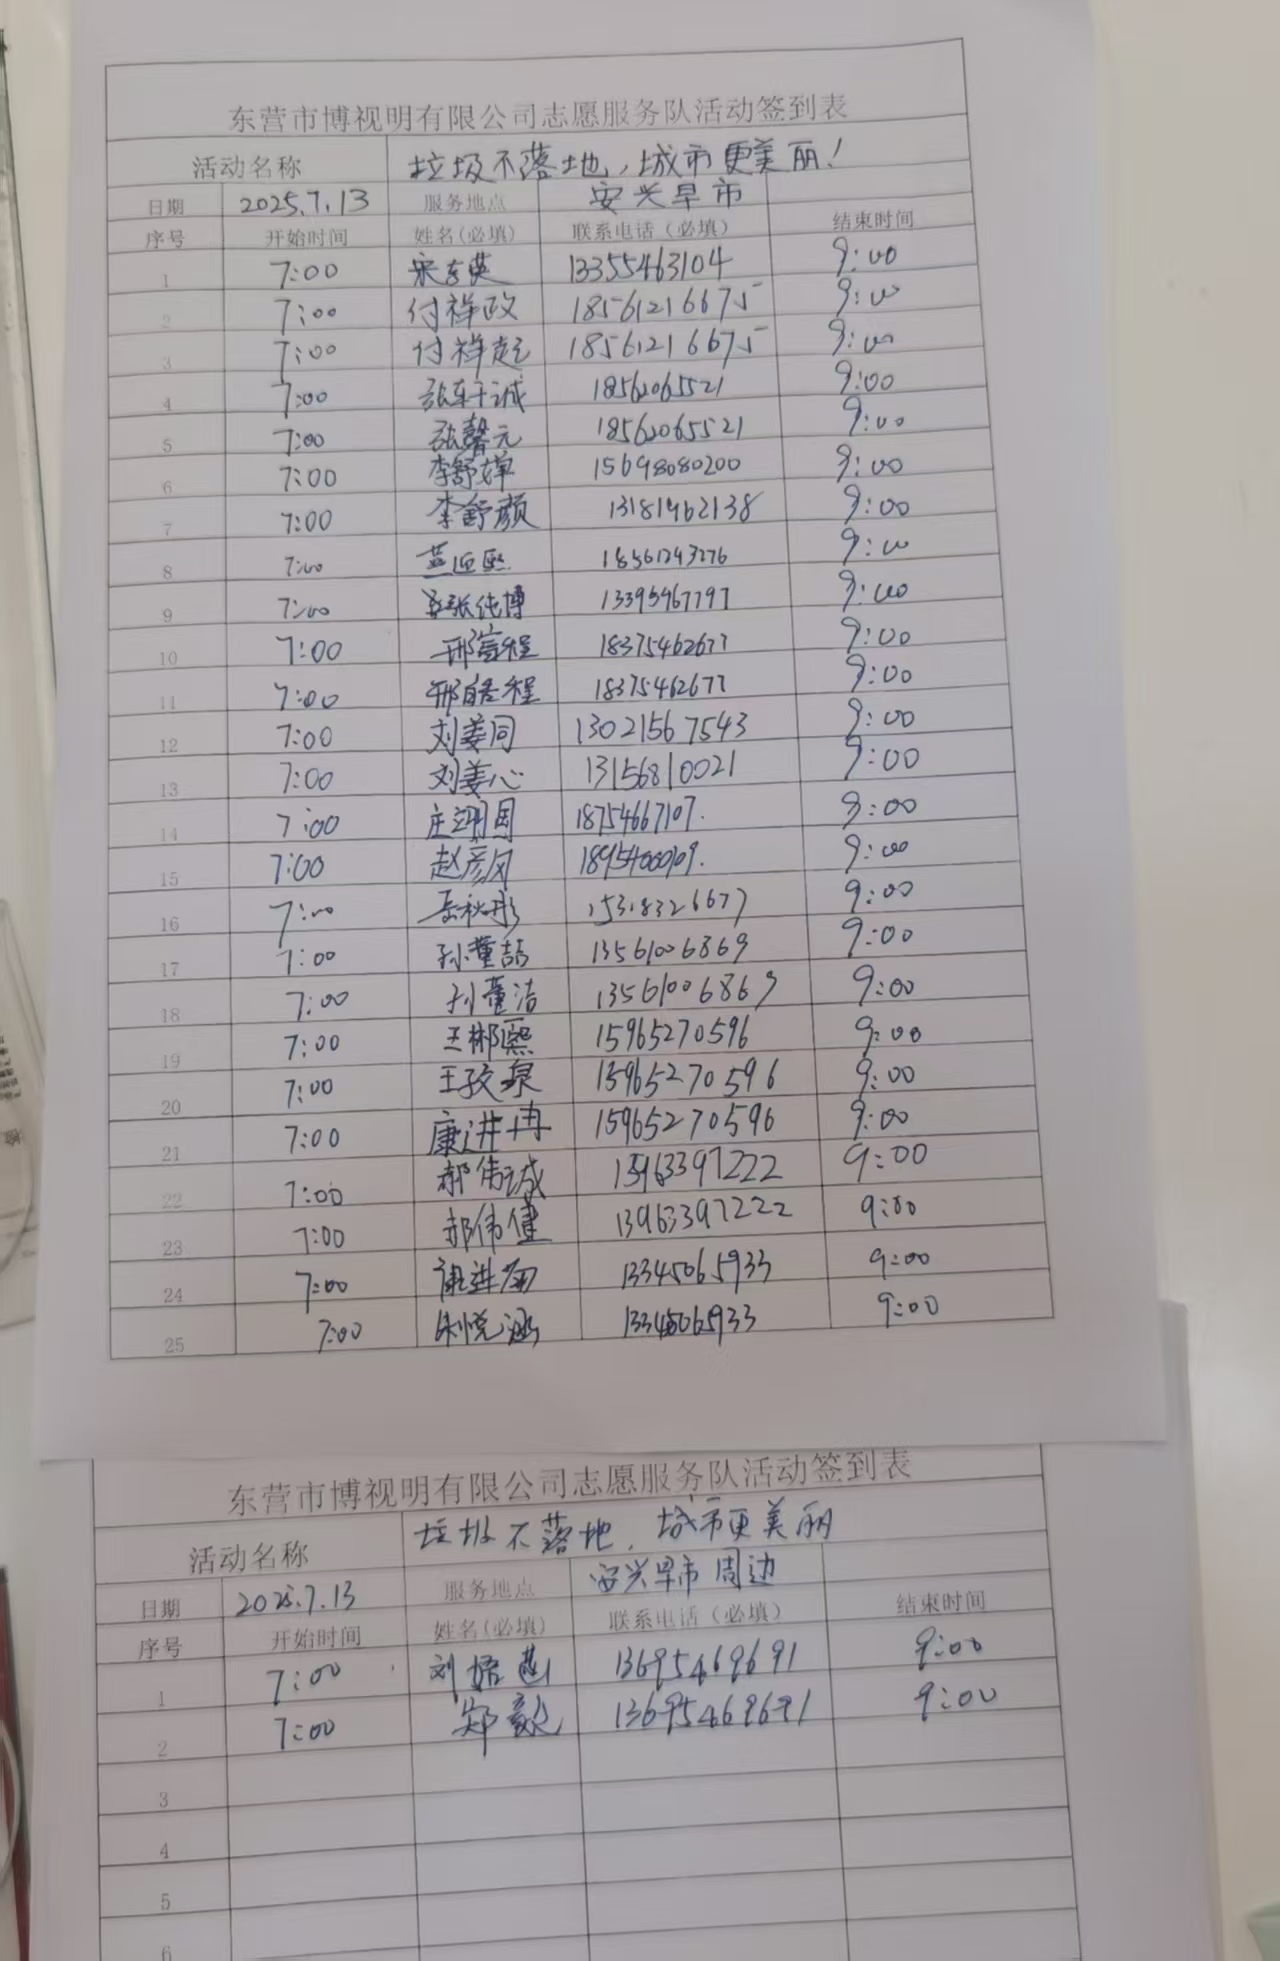 东营市博视明有限公司志愿服务队活动签到表
活动名称 垃圾不落地，城市更美丽！
日期 2025.7.13 服务地点 安兴早市
序号 开始时间 姓名(必填) 联系电话（必填） 结束时间
1 7:00 宋志英 13355463104 9:00
2 7:00 付祥政 18561216675 9:00
3 7:00 付祥起 18561216675 9:00
4 7:00 张轩诚 18562065521 9:00
5 7:00 张馨元 18562065521 9:00
6 7:00 李舒婵 15698080200 9:00
7 7:00 李舒颜 13181962138 9:00
8 7:00 18561243276 9:00
9 7:00 张纯博 13395467797 9:00
10 7:00 邢富程 18375462677 9:00
11 7:00 邢皓程 18375462677 9:00
12 7:00 刘姜同 13021567543 9:00
13 7:00 刘姜心 13156810021 9:00
14 7:00 庄翊国 18754667107. 9:00
15 7:00 赵彦风 9:00
16 7:00 岳秋彤 15318326677 9:00
17 7:00 孙董喆 13561006869 9:00
18 7:00 孙董洁 13561006869 9:00
19 7:00 王郴熙 15965270596 9:00
20 7:00 王孜泉 15965270596 9:00
21 7:00 康进冉 15965270596 9:00
22 7:00 郝伟诚 13963397222 9:00
23 7:00 郝伟健 13963397222 9:00
24 7:00 13345065933 9:00
25 7:00 朱悦涵 13345065933 9:00
东营市博视明有限公司志愿服务队活动签到表
活动名称 垃圾不落地，城市更美丽
日期 2025.7.13 服务地点 安兴早市周边
序号 开始时间 姓名(必填) 联系电话（必填） 结束时间
1 7:00 刘 13695469691 9:00
2 7:00 郑毅 13695469691 9:00
3
4
5
6